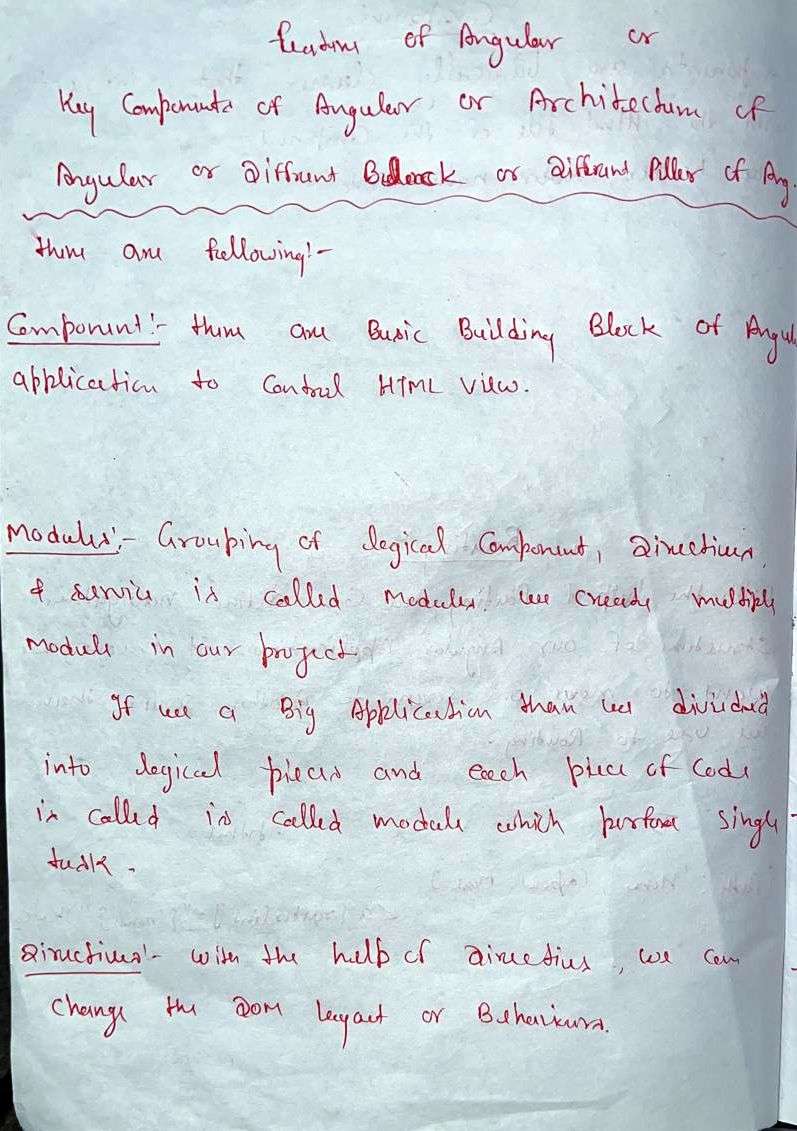 Feature of Angular or
Key Components of Angular or Architecture of
Angular or Different Bulock or Different Piller of Ang.
there are following:-
Component:- there are Basic Building Block of Angul
application to Control HTML View.
Modules:- Grouping of logical Component, Directives,
& service is called Modules we create multiple
Module in our project.
If we a Big Application than we divided
into logical pieces and each piece of Code
is called is called module which perform single
task.
Directives:- with the help of directives, we can
change the DOM layout or Behaviours.